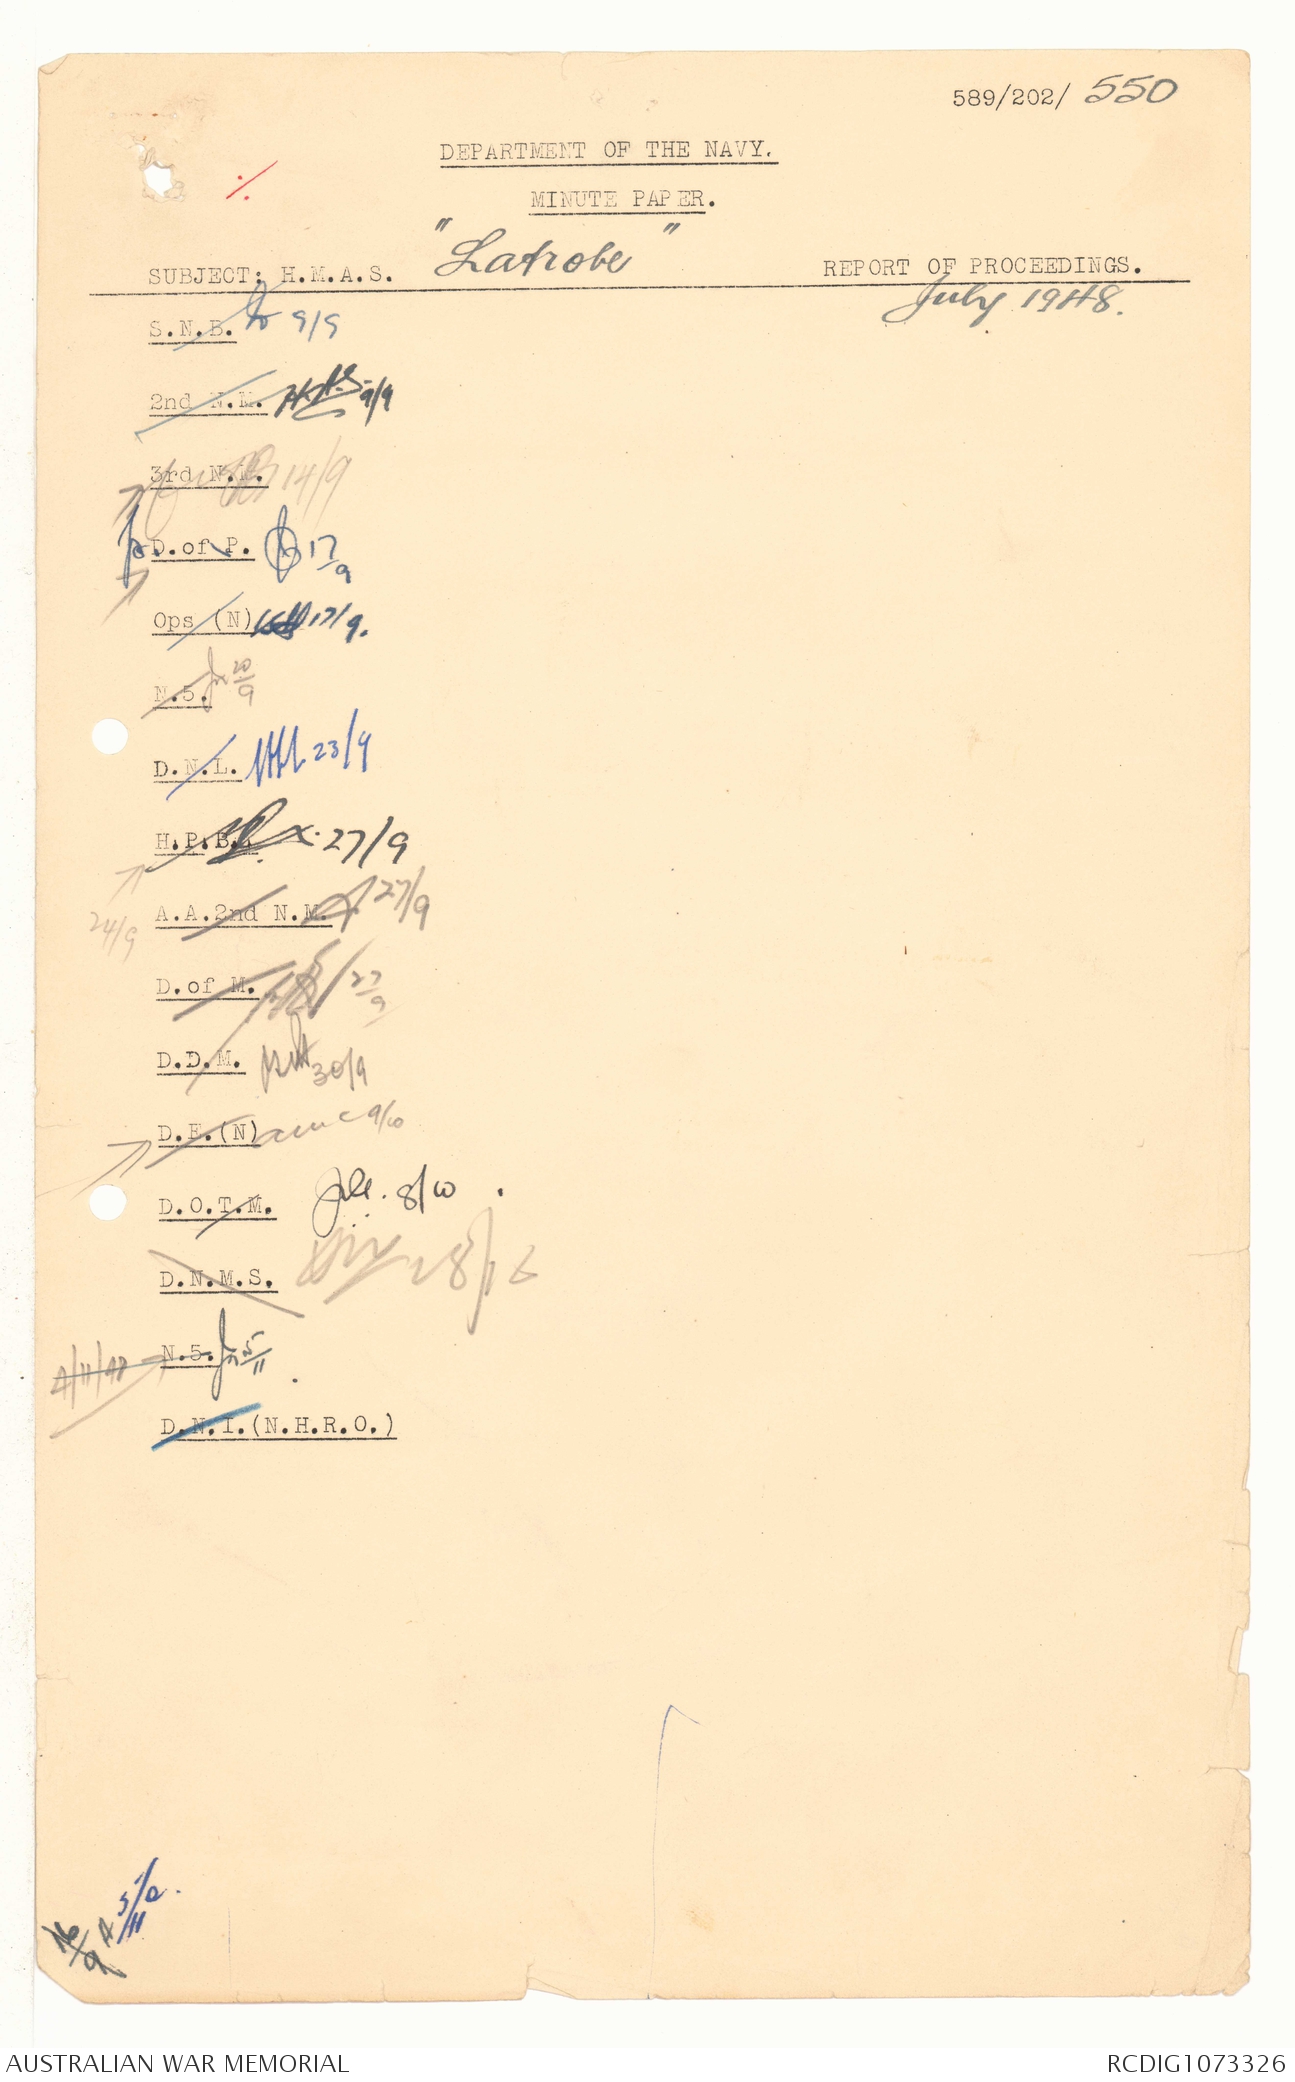 589/202/ 550
DEPARTMENT OF THE NAVY.
MINUTE PAPER.
SUBJECT: H.M.A.S. "Latrobe" REPORT OF PROCEEDINGS.
July 1948.
S.N.B. 9/9
2nd N.M. 9/9
3rd N.M. 14/9
D.of P. 17/9
Ops (N) 17/9.
N.5. 20/9
D.N.L. 23/9
H.P.B. 27/9
24/9
A.A.2nd N.M. 27/9
D.of M. 27/9
D.D.M. 30/9
D.E.(N) 9/10
D.O.T.M. 8/10
D.N.M.S.
4/11/48 N.5. 5/11
D.N.I.(N.H.R.O.)
5/11
AUSTRALIAN WAR MEMORIAL RCDIG1073326